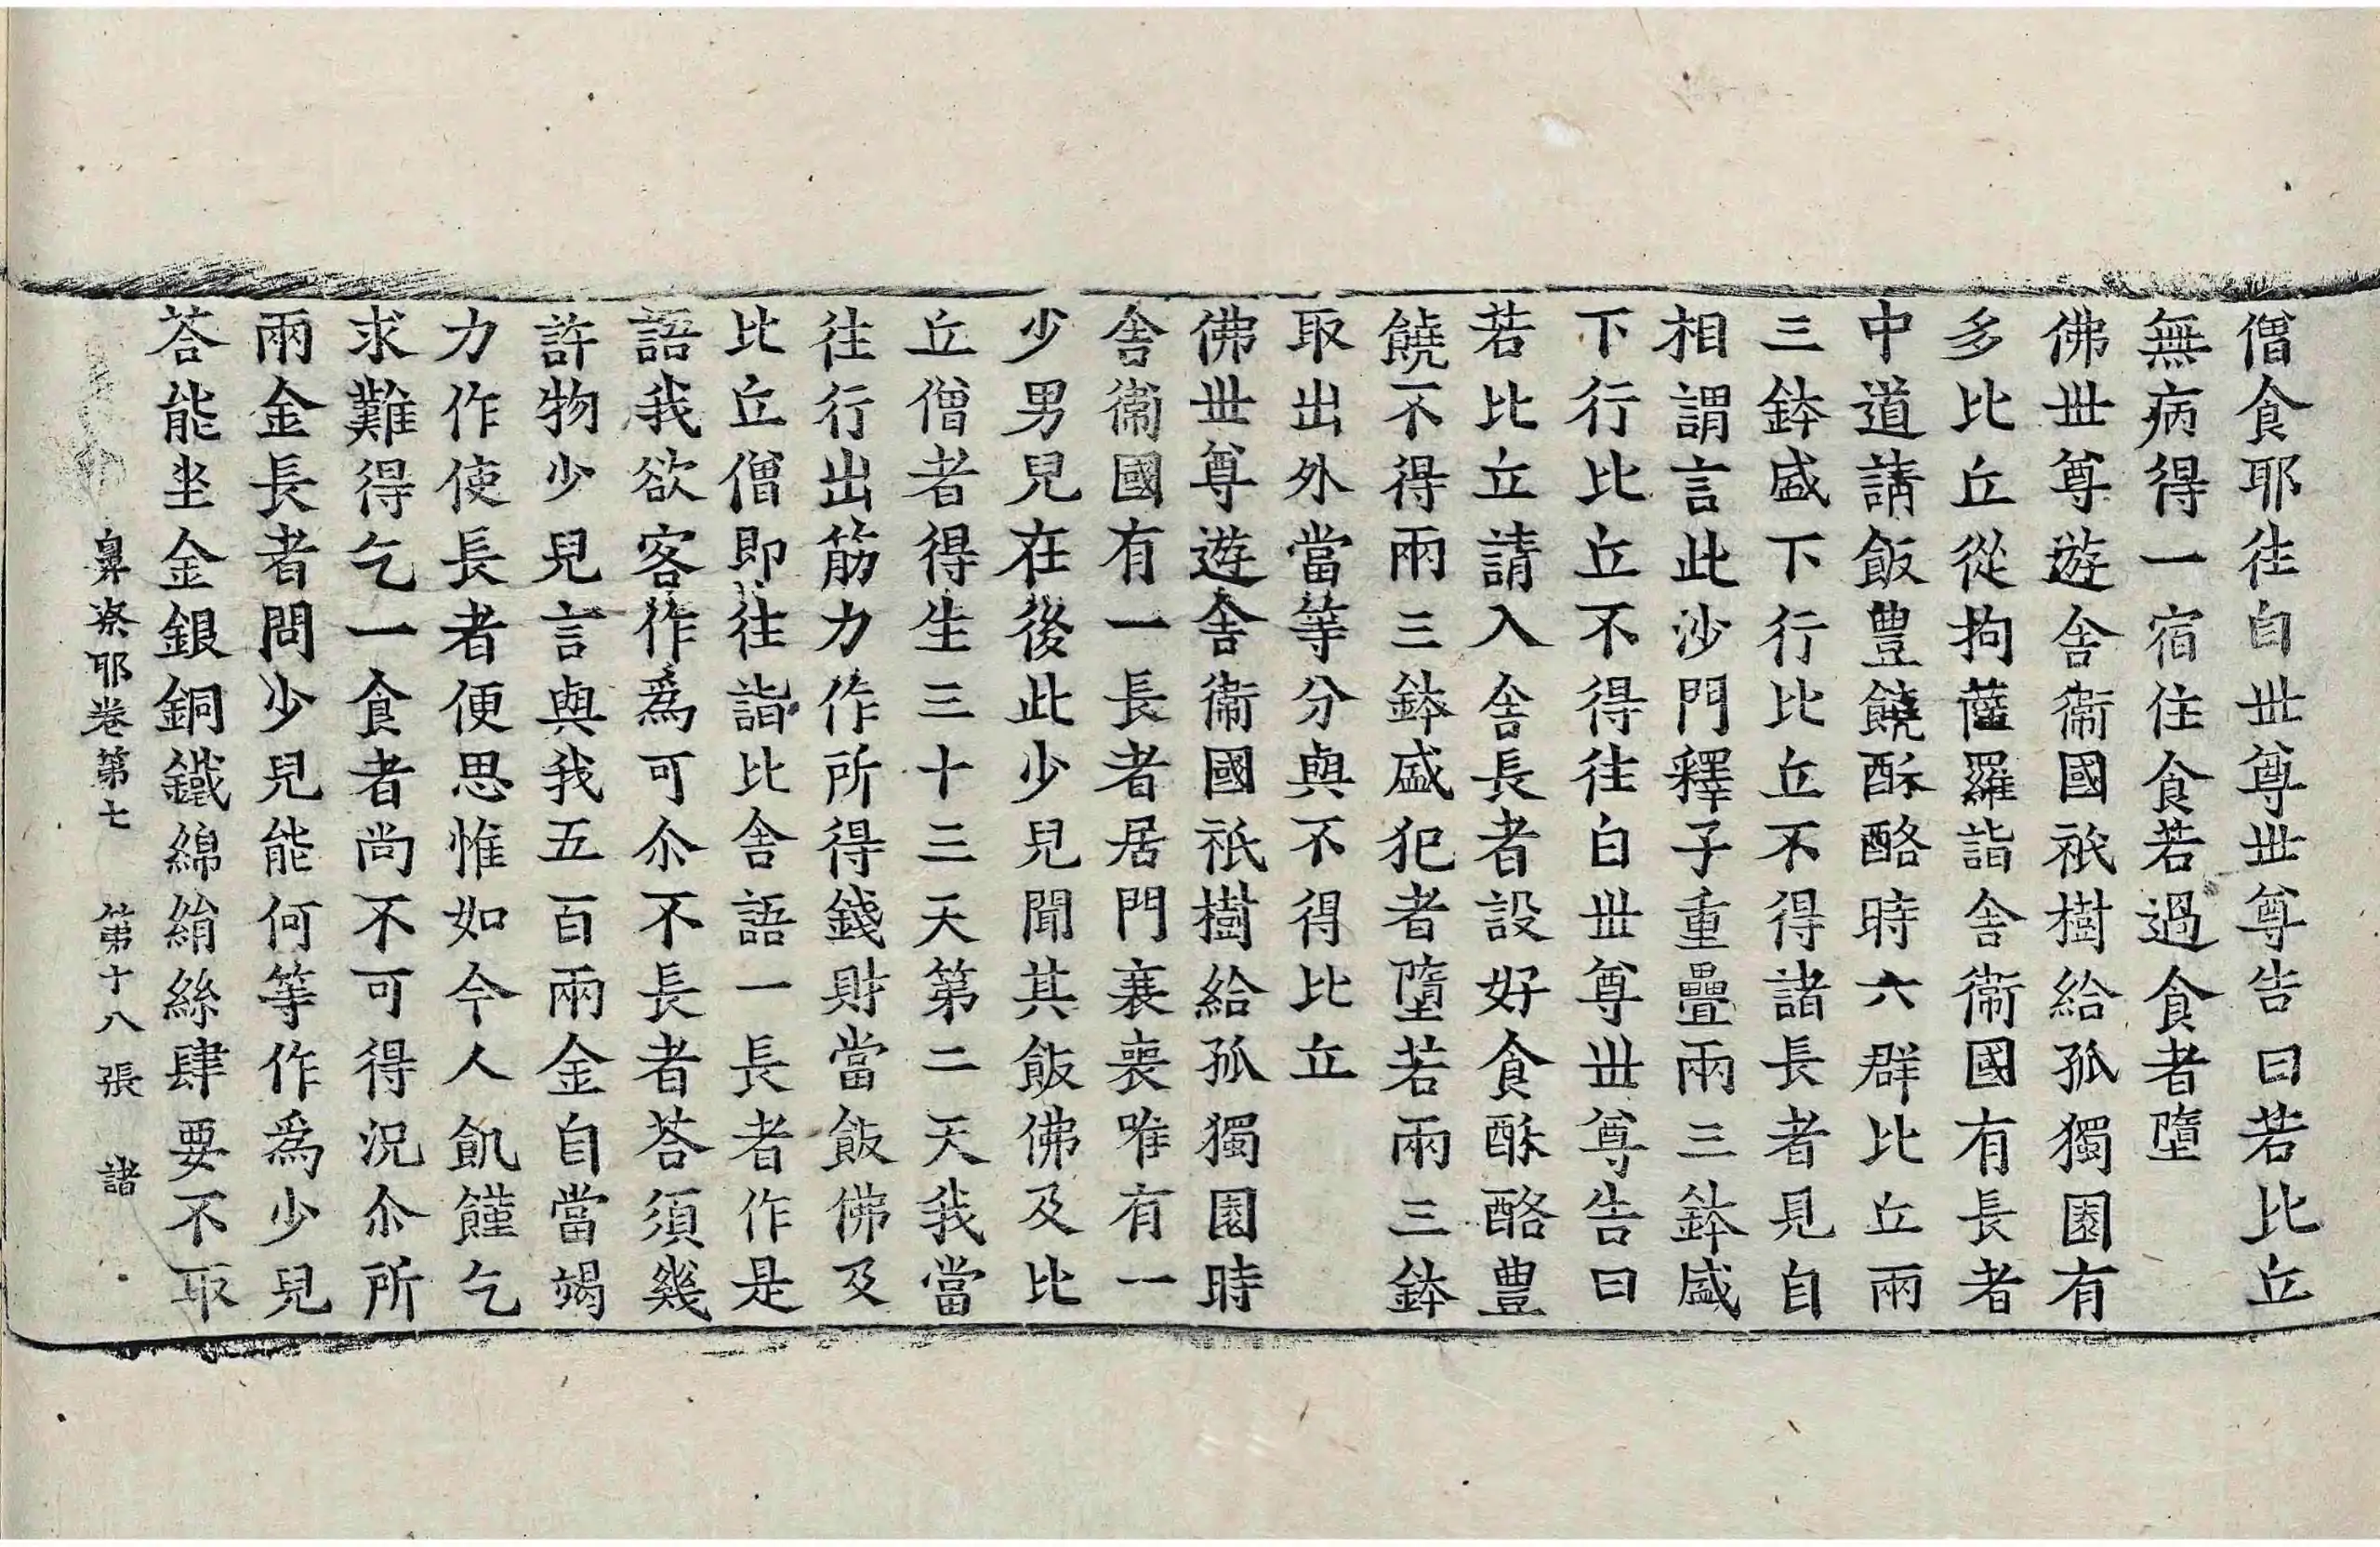 僧食耶往白世尊世尊告曰若比丘
無病得一宿住食若過食者墮
佛世尊遊舍衞國祇樹給孤獨園有
多比丘從拘薩羅詣舍衞國有長者
中道請飯豊饒酥酪時六群比丘兩
三鉢盛下行比丘不得諸長者見自
相謂言此沙門釋子重疊兩三鉢盛
下行比丘不得往白世尊世尊告曰
若比丘請入舍長者設好食酥酪豊
饒不得兩三鉢盛犯者墮若兩三鉢
取出外當等分與不得比丘
佛世尊遊舍衞國祇樹給孤獨園時
舍衞國有一長者居門衰喪唯有一
少男兒在後此少兒聞其飯佛及比
丘僧者得生三十三天第二天我當
往行出筋力作所得錢財當飯佛及
比丘僧即往詣比舍語一長者作是
語我欲客作爲可尒不長者荅須幾
許物少兒言與我五百兩金自當竭
力作使長者便思惟如今人飢饉乞
求難得乞一食者尚不可得況尒所
兩金長者問少兒能何等作爲少兒
荅能坐金銀銅鐵綿絹絲肆要不取
鼻奈耶卷第七 第十八張 諸